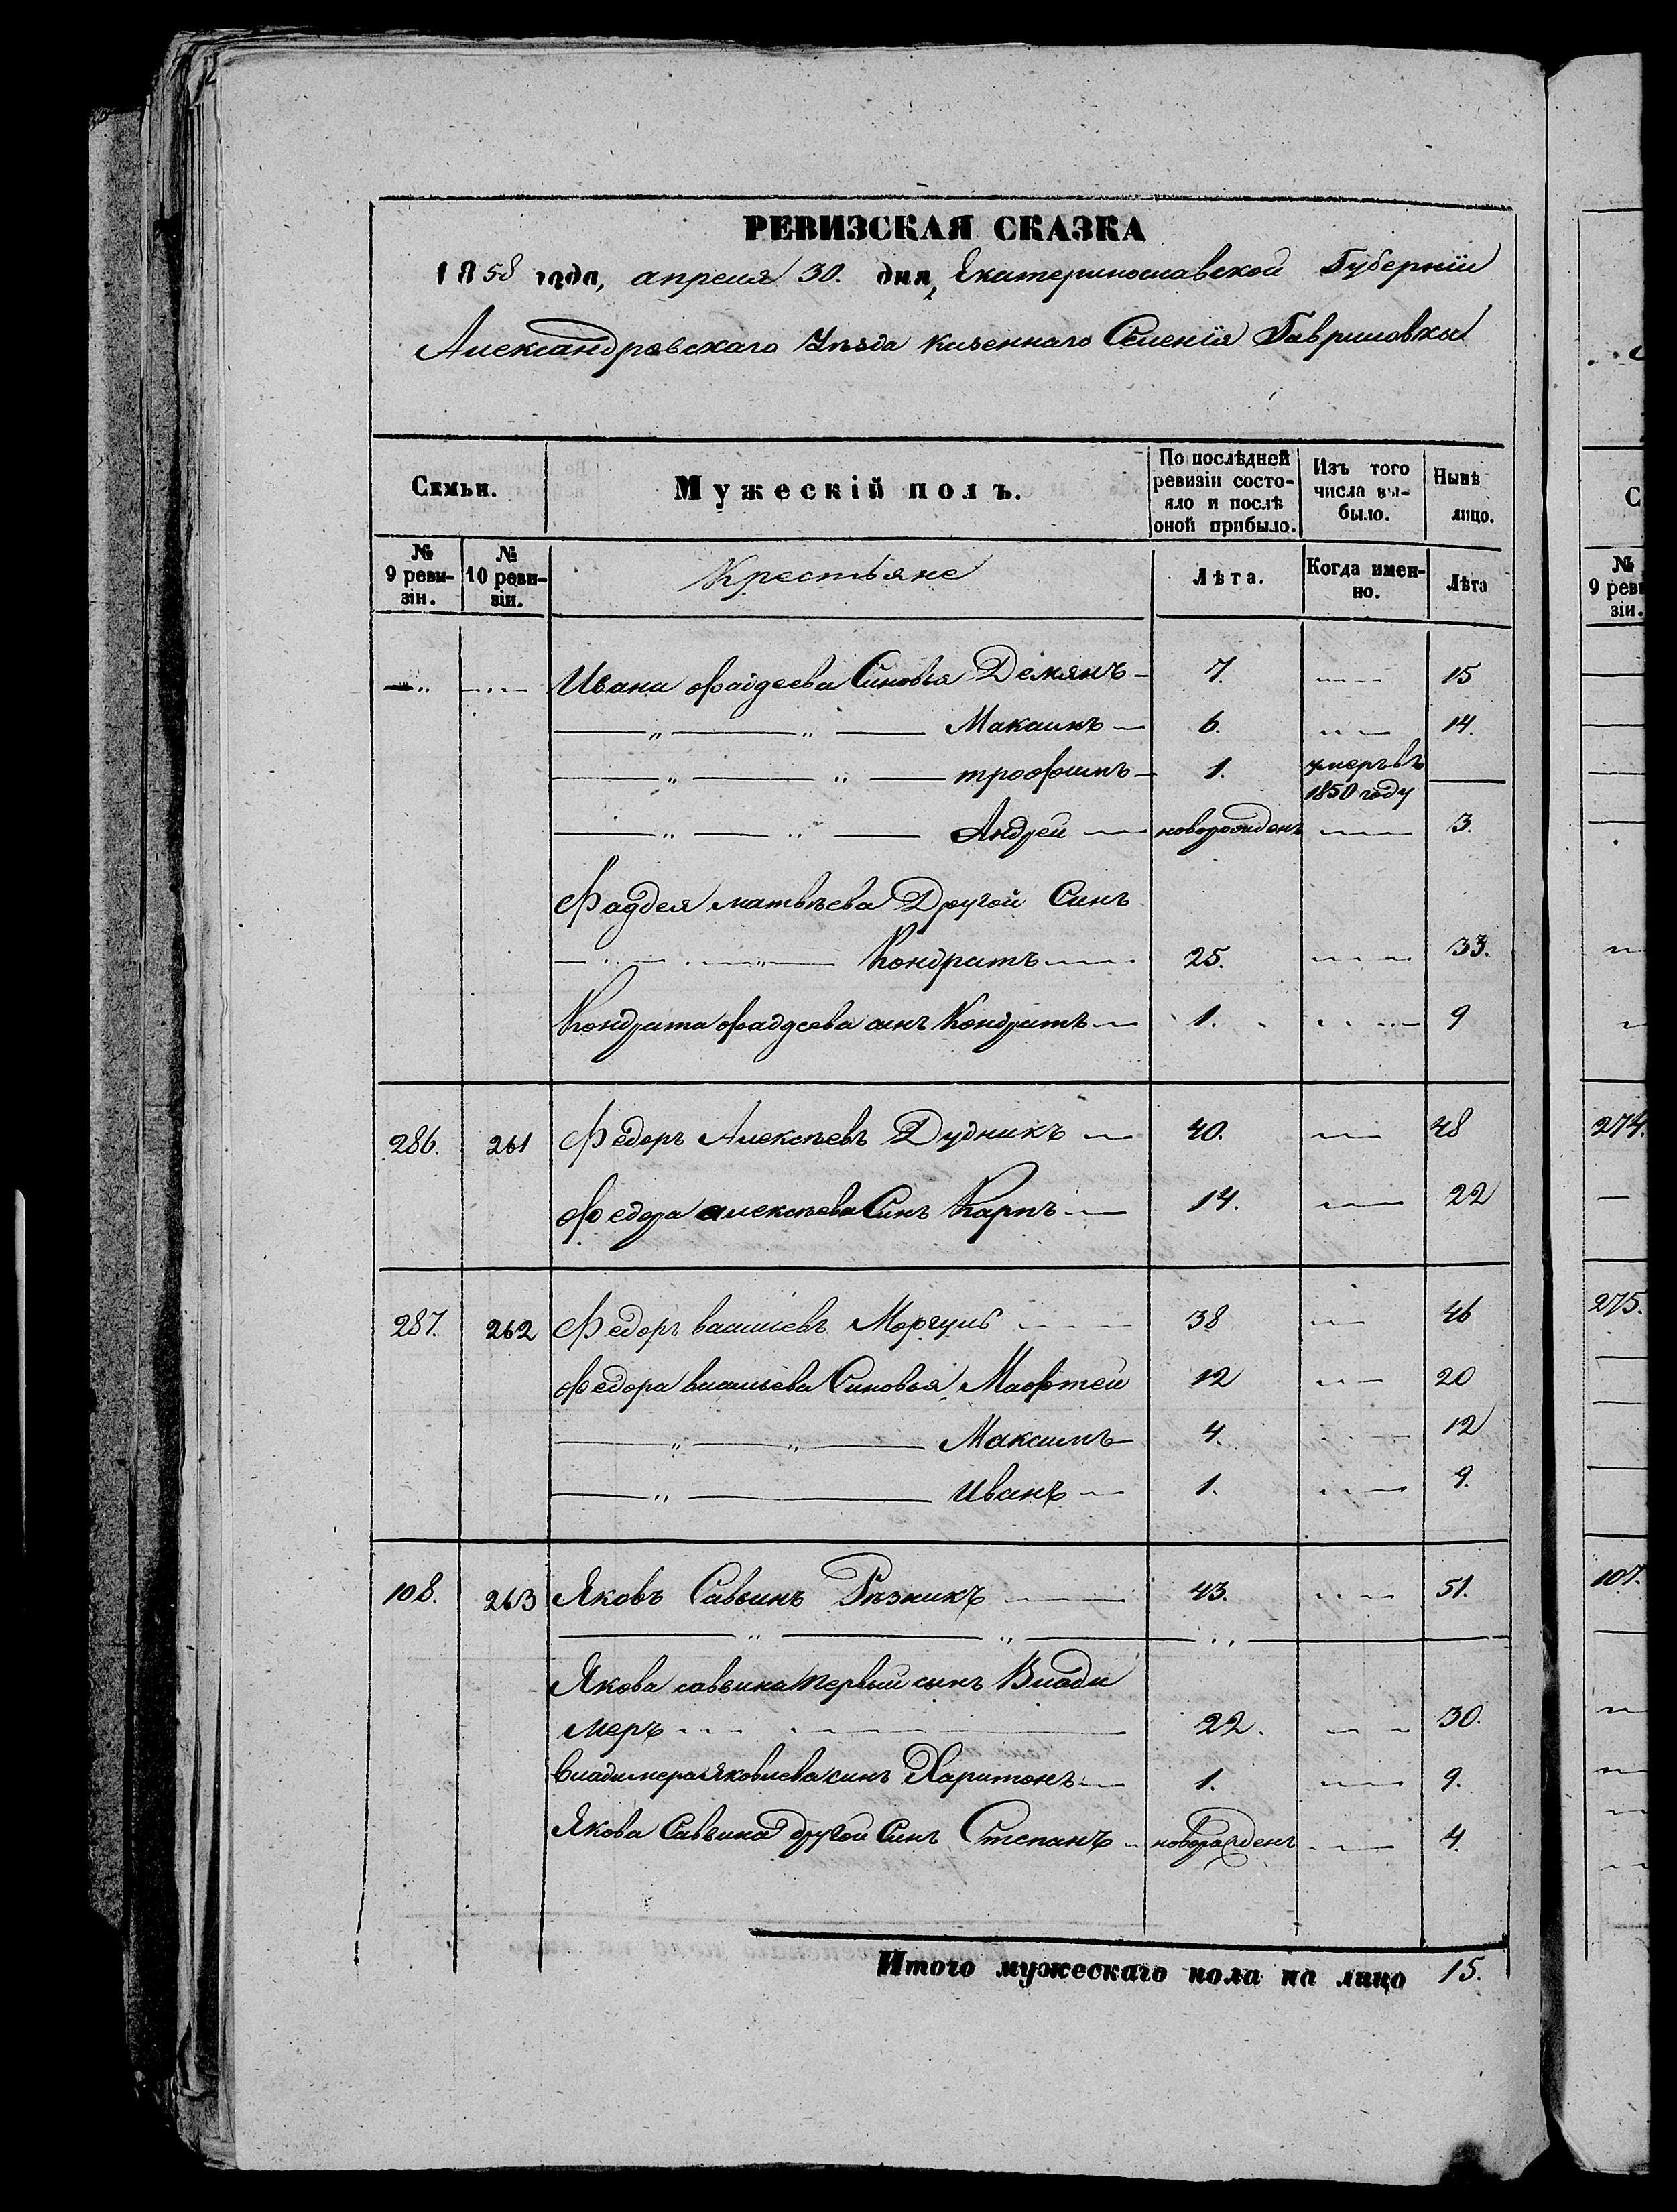 РЕВИЗСКАЯ СКАЗКА
1858 года, апреля 30. дня, Екатеринославской Губернїи
Александровскаго Уѣзда казеннаго Селенїя Гавриловки
Семьи.
Мужескій полъ.
По послѣдней ревизіи состояло и послѣ оной прибыло.
Изъ того числа выбыло.
Нынѣ лицо.
№ 9 ревизіи.
№ 10 ревизіи.
Крестьяне
Лѣта.
Когда именно.
Лѣта
Ивана Фадеева Синовья Демянъ 7. 15
Максимъ 6. 14.
трофимъ 1. умеръ въ 1850 году
Андрей новорожденъ 3.
Фаддея матвѣева Другой Синъ
Кондратъ 25. 33.
Кондрата фаддеева синъ Кондратъ 1. 9
286. 261 Федоръ Алексѣевъ Дудникъ 40. 48
Федора алексѣева Синъ Карпъ 14. 22
287. 262 Федоръ васильевъ Моргунъ 38 46
Федора васильева Синовья Мафтей 12 20
Максимъ 4. 12
Иванъ 1. 9.
108. 263 Яковъ Саввинъ Рѣзникъ 43. 51.
Якова саввина первый сынъ Влади
меръ 22. 30.
Владимера яковлева синъ Харитонъ 1. 9.
Якова Саввина другой Синъ Степанъ новорожденъ 4.
Итого мужескаго пола на лицо 15.
С
№ 9 реви зіи.
274.
275.
107.